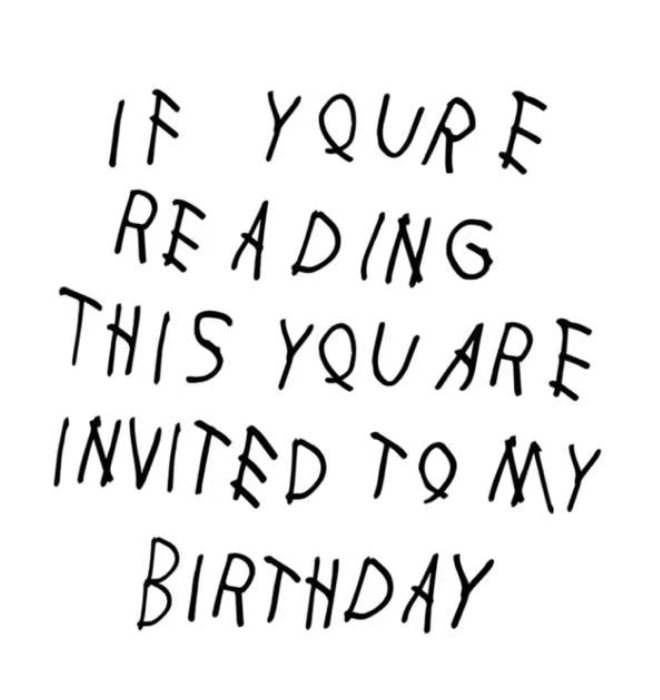 IF YOURE
READING
THIS YOU ARE
INVITED TO MY
BIRTHDAY